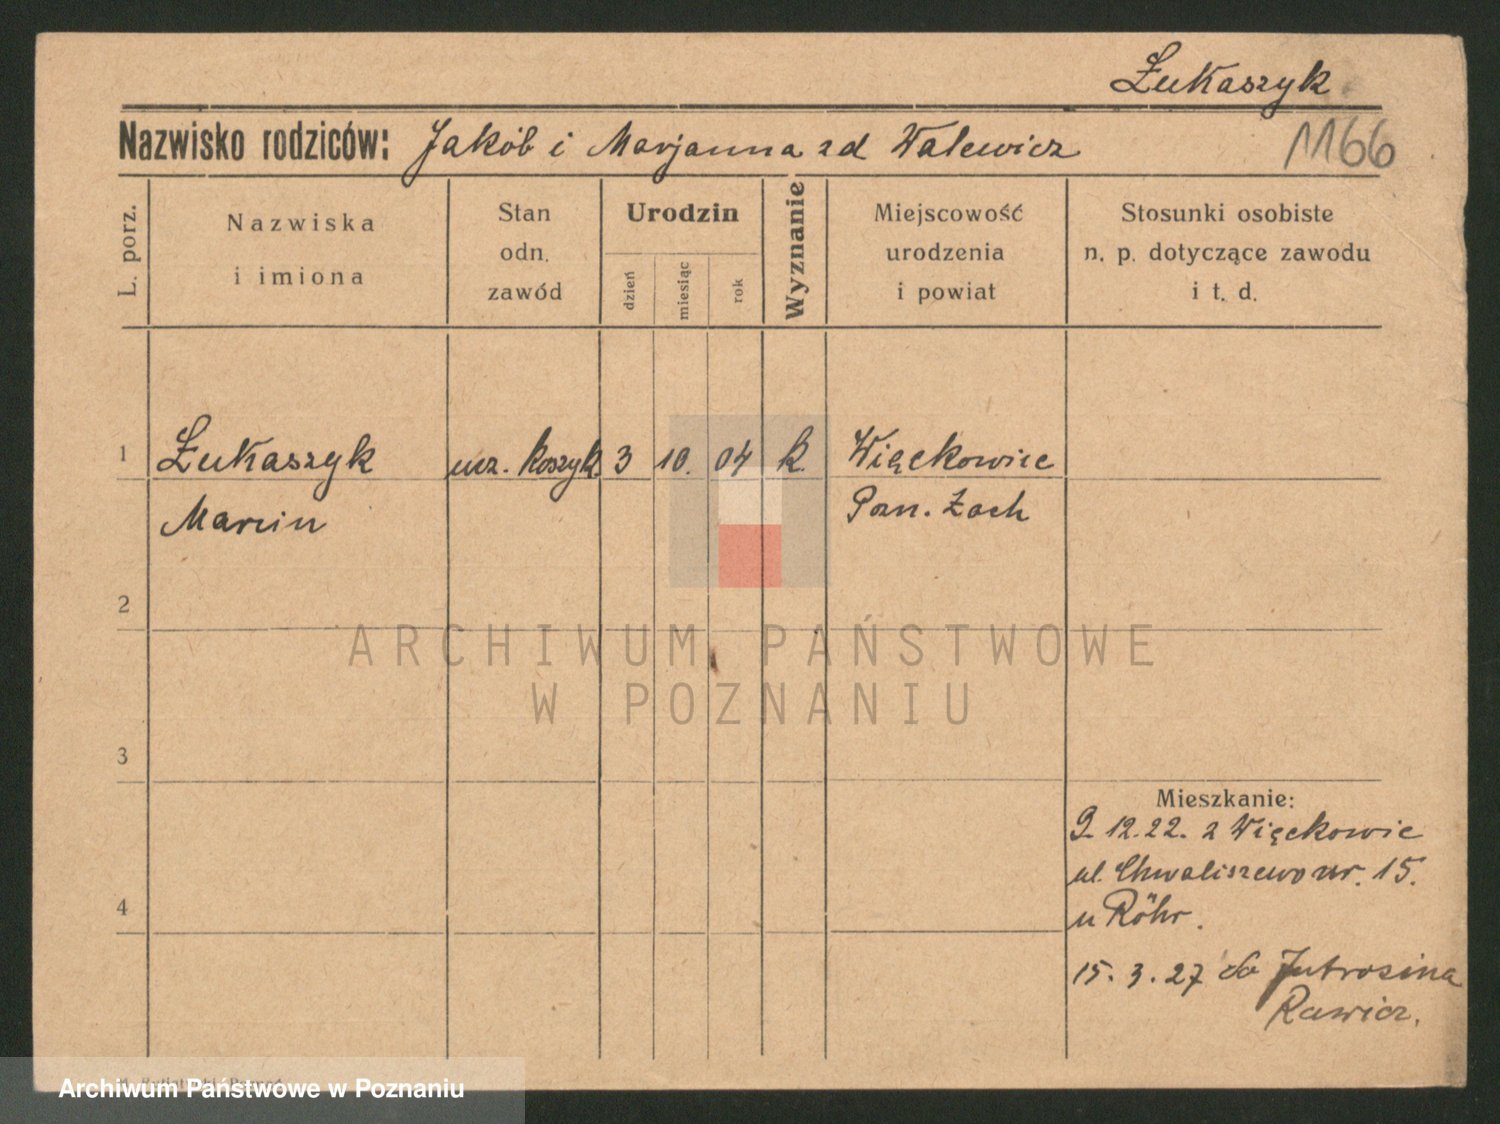 Łukaszyk
Nazwisko rodziców: Jakób i Marjanna zd Walewicz
1166
L. porz.
Nazwiska
i imiona
Stan
odn.
zawód
Urodzin
dzień
miesiąc
rok
Wyznanie
Miejscowość
urodzenia
i powiat
Stosunki osobiste
n. p. dotyczące zawodu
i t. d.
1 Łukaszyk ucz. koszyk. 3 10. 04 k. Więckowice
Marcin Pozn. Zach
2
ARCHIWUM PAŃSTWOWE
W POZNANIU
3
Mieszkanie:
9. 12. 22. z Więckowic
ul. Chwaliszewo nr. 15.
4
u Röhr.
15. 3. 27 do Jutrosina
Rawicz.
Archiwum Państwowe w Poznaniu